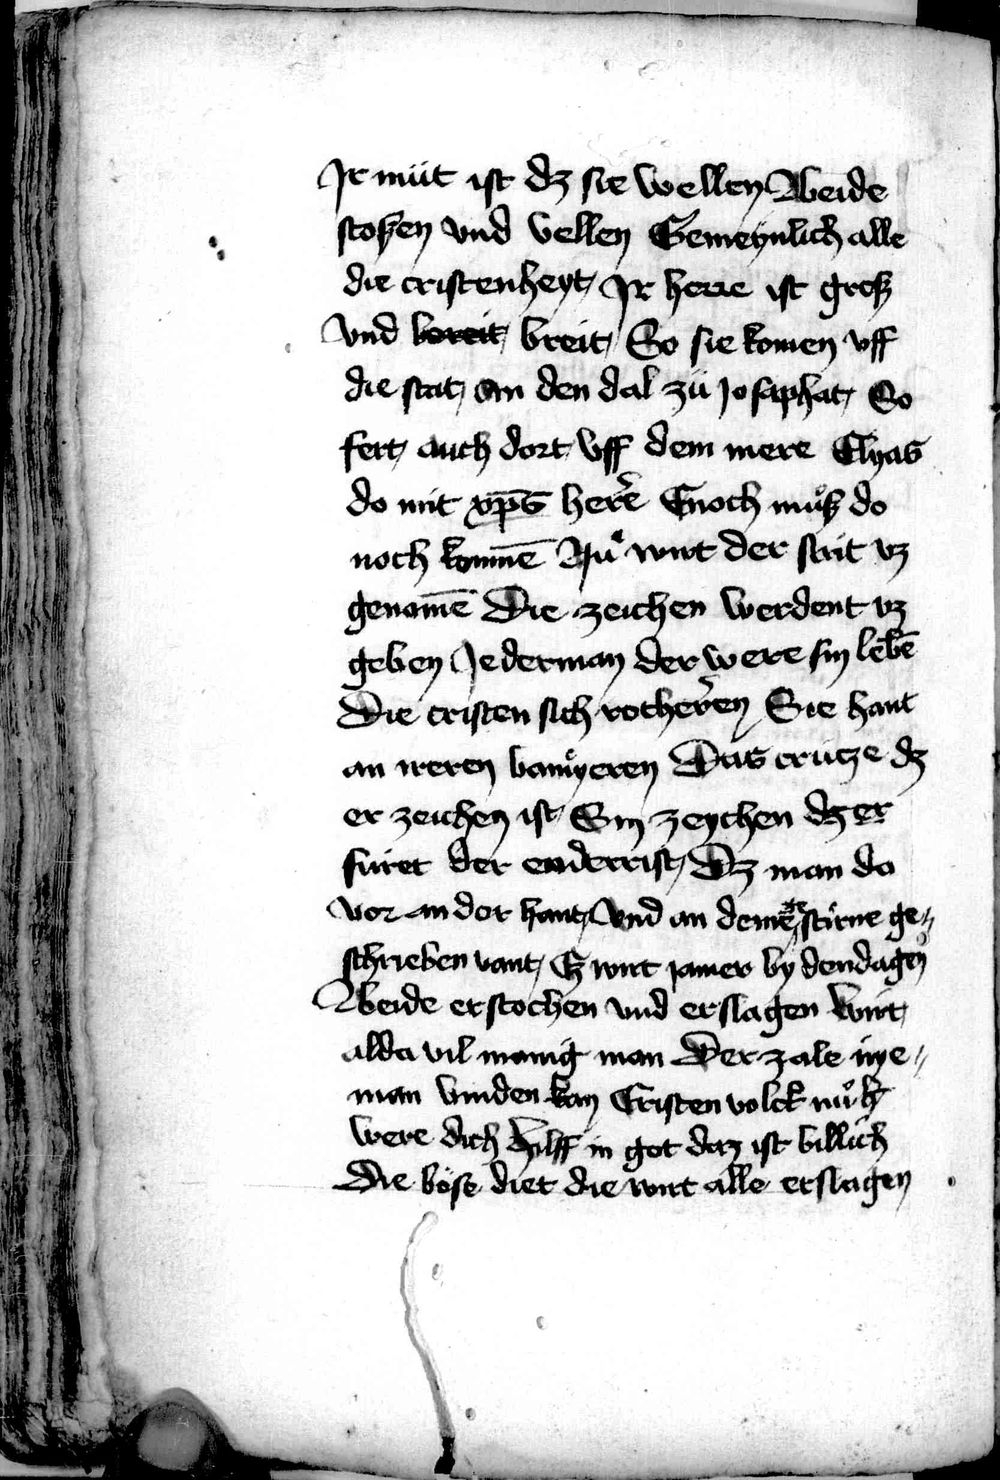 Ir müt ist dz sie wellen Beide
stoßen vnd vellen Gemeynlich alle
die cristenheyt Ir herre ist groß
Vnd bereit breit So sie komen vff
die stat An den dal zü Josaphat So
fert auch dort vff dem mere Elyas
do mit xp̄s here Enoch muͦß do
noch kom̄e Nuͦ wirt der strit vz
genom̄e Die zeichen werdent vz
geben Jederman der were sin lebē
Die cristen sich rotheren Sie hant
an iren banyeren Das crutze dz
er zeichen ist Sin zeychen dz er
füret der endecrist Dz man do
vor an der hant Vnd an deme stirne ge„
schrieben vant Ez wirt jamer by den dagen
Beide erstochen vnd erslagen Wirt
alda vil manig man Der zale nye„
man vinden kan Cristen volck nuͦ
were dich Hilff in got daz ist billich
Die böse diet die wirt alle erslagen